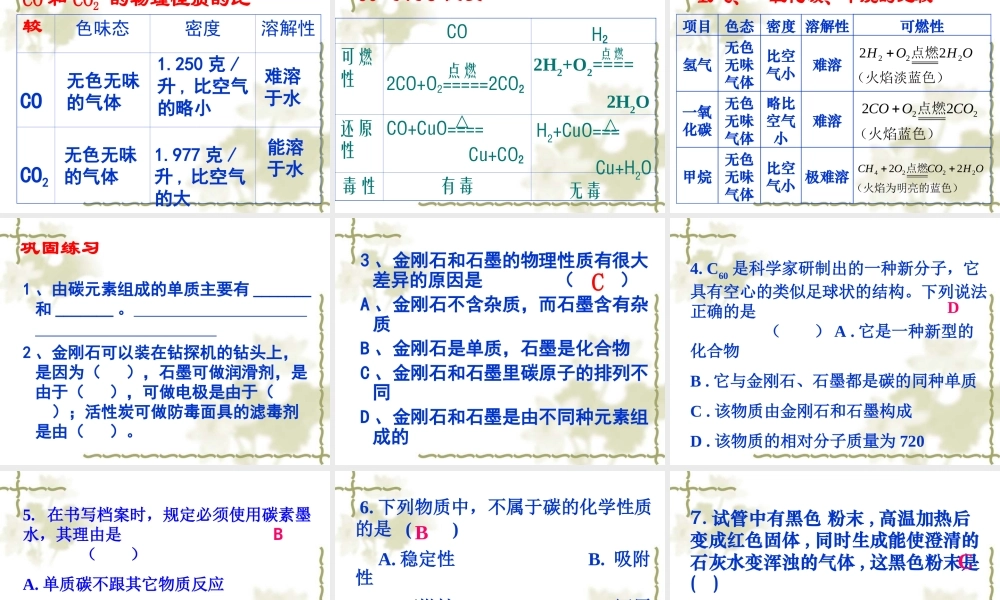 CO 和 CO2 的物理性质的比
较
色味态 密度 溶解性
CO 无色无味的气体 1.250 克/升，比空气的略小 难溶于水
CO2 无色无味的气体 1.977 克/升，比空气的大 能溶于水
CO H2
可燃性 2CO+O2=====2CO2 点燃 2H2+O2==== 点燃 2H2O
还原性 CO+CuO==== △ Cu+CO2 H2+CuO=== △ Cu+H2O
毒性 有毒 无毒
项目 色态 密度 溶解性 可燃性
氢气 无色无味气体 比空气小 难溶 2H2 + O2 点燃 2H2O （火焰淡蓝色）
一氧化碳 无色无味气体 略比空气小 难溶 2CO + O2 点燃 2CO2 （火焰蓝色）
甲烷 无色无味气体 比空气小 极难溶 CH4 + 2O2 点燃 CO2 + 2H2O （火焰为明亮的蓝色）
巩固练习
1、由碳元素组成的单质主要有 _______
和 _______ 。
2、金刚石可以装在钻探机的钻头上，
是因为（　），石墨可做润滑剂，是
由于（　），可做电极是由于（
）；活性炭可做防毒面具的滤毒剂
是由（　）。
3、金刚石和石墨的物理性质有很大
差异的原因是 （ C ）
A、金刚石不含杂质，而石墨含有杂
质
B、金刚石是单质，石墨是化合物
C、金刚石和石墨里碳原子的排列不
同
D、金刚石和石墨是由不同种元素组
成的
4. C60 是科学家研制出的一种新分子，它
具有空心的类似足球状的结构。下列说法
正确的是 D
（　） A . 它是一种新型的
化合物
B . 它与金刚石、石墨都是碳的同种单质
C . 该物质由金刚石和石墨构成
D . 该物质的相对分子质量为 720
5. 在书写档案时，规定必须使用碳素墨
水，其理由是 B
（　）
A. 单质碳不跟其它物质反应
6. 下列物质中，不属于碳的化学性质
的是 ( B )
A. 稳定性 B. 吸附
性
7. 试管中有黑色 粉末 , 高温加热后
变成红色固体 , 同时生成能使澄清的
石灰水变浑浊的气体 , 这黑色粉末是 C
( )